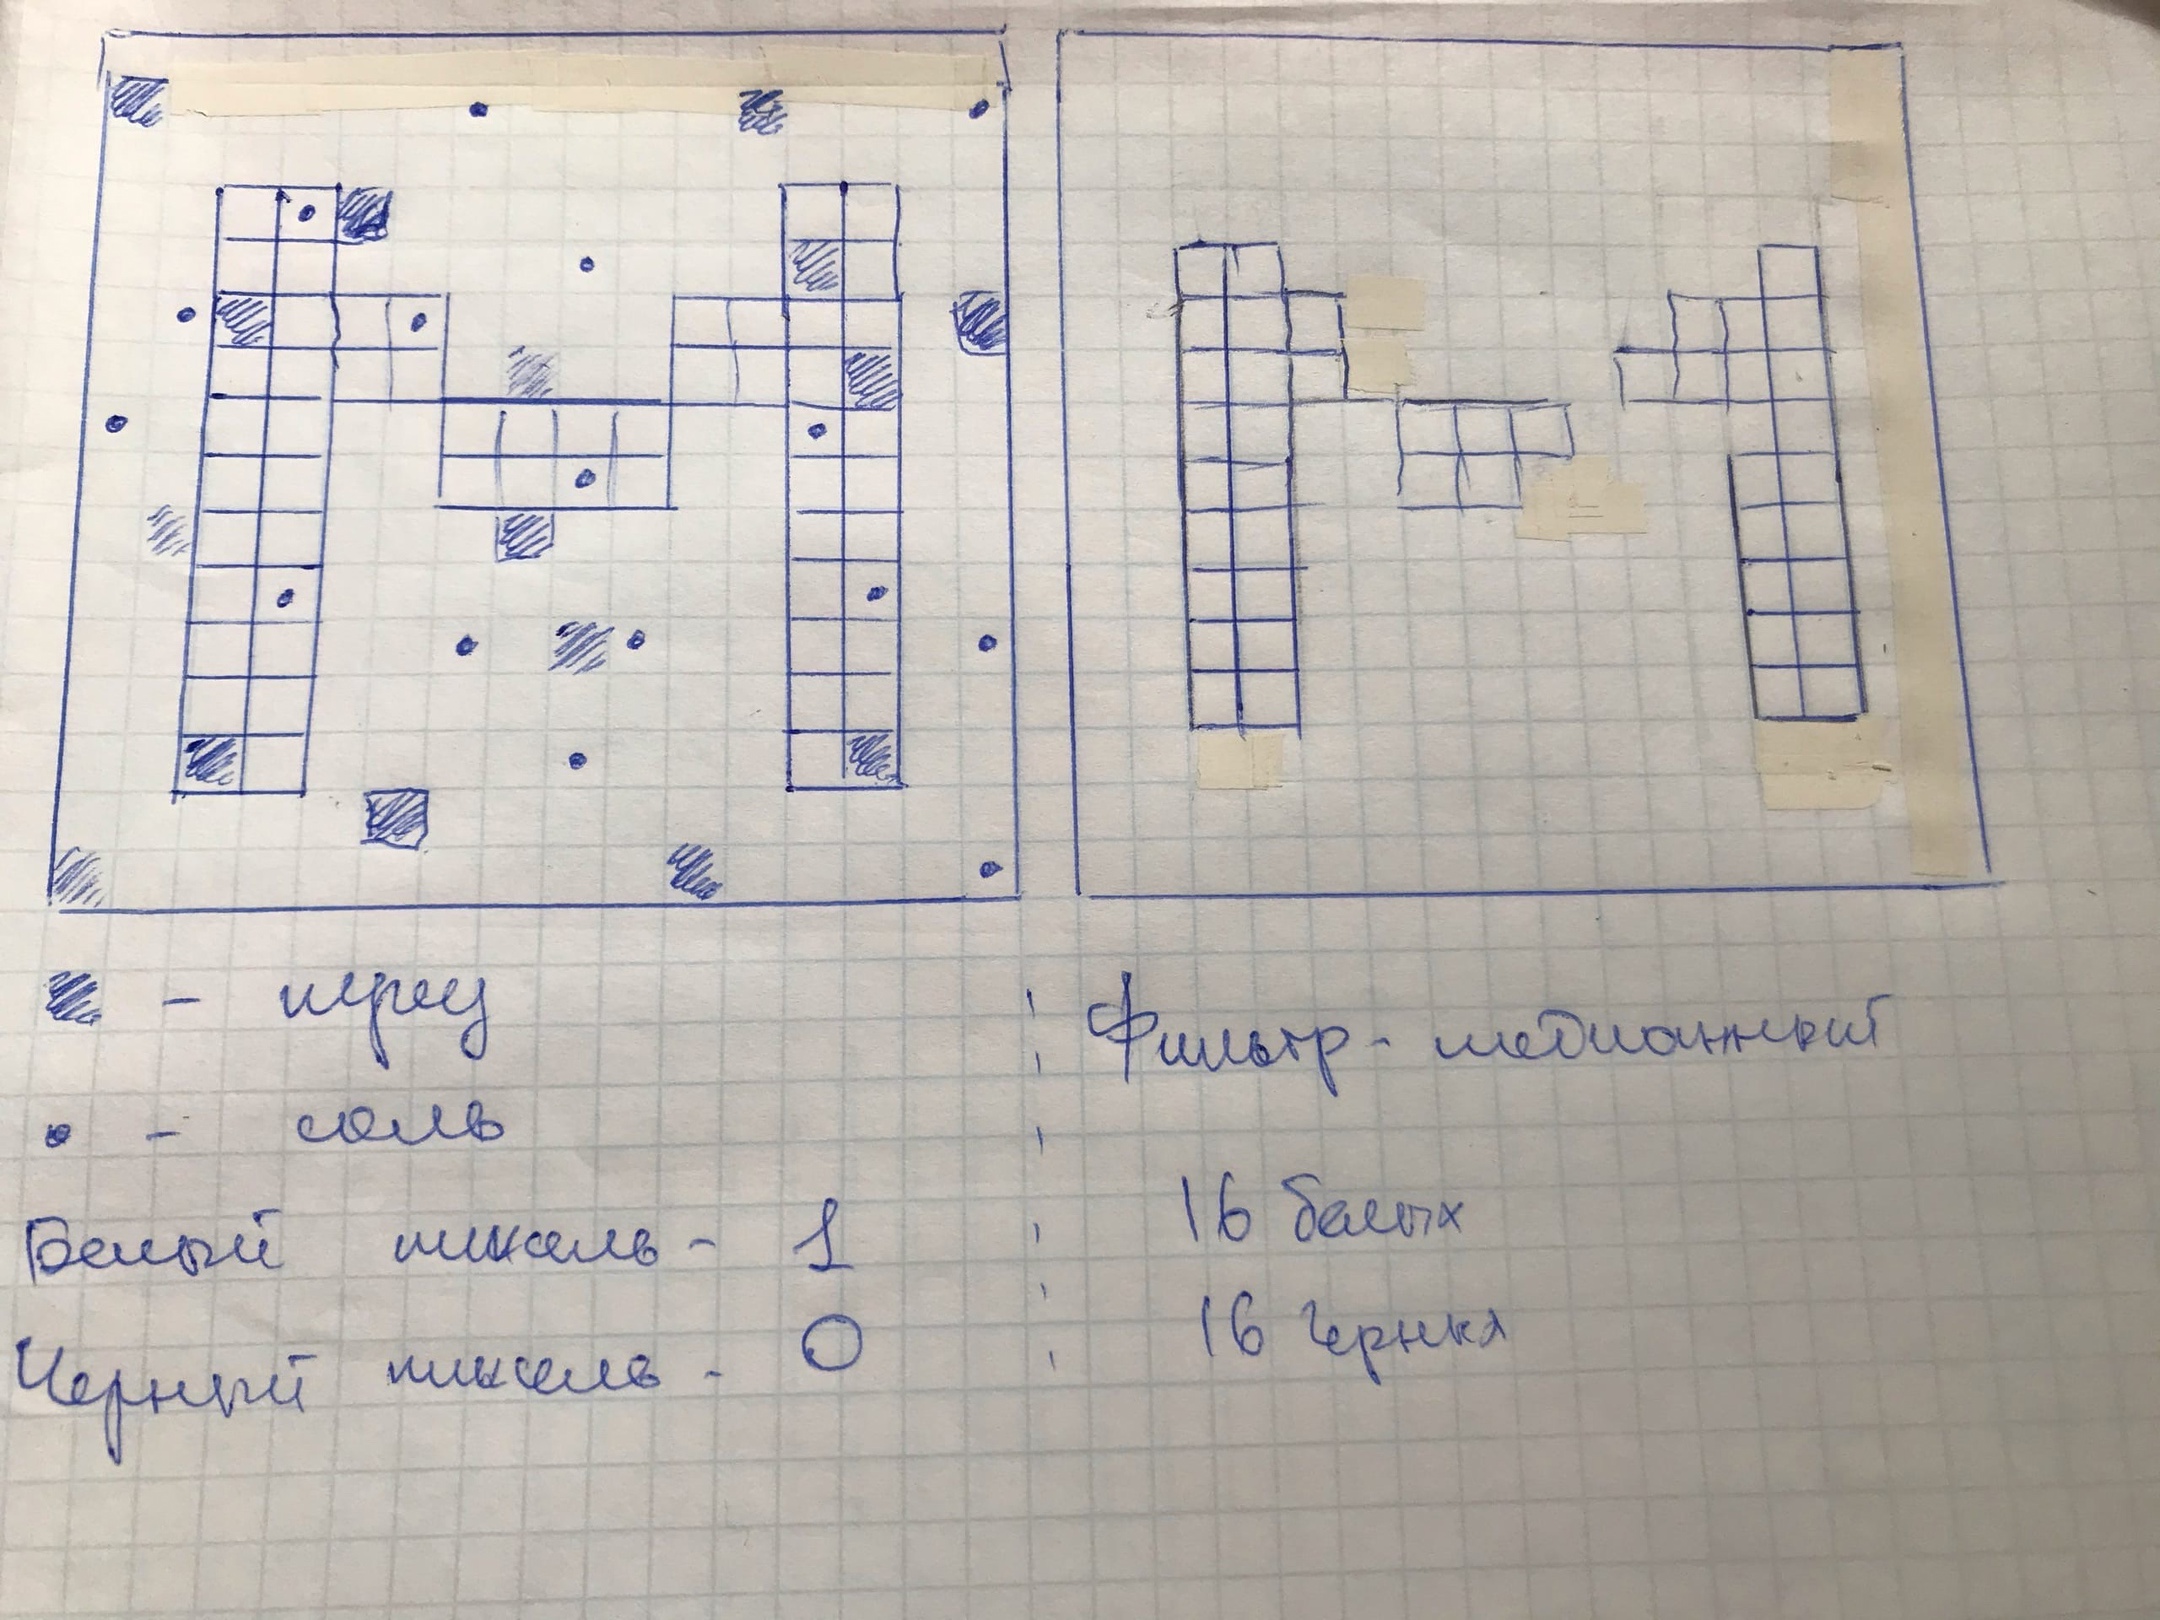 - перец
- соль
Белый пиксель - 1
Черный пиксель - 0
Фильтр - медианный
16 белых
16 Черных